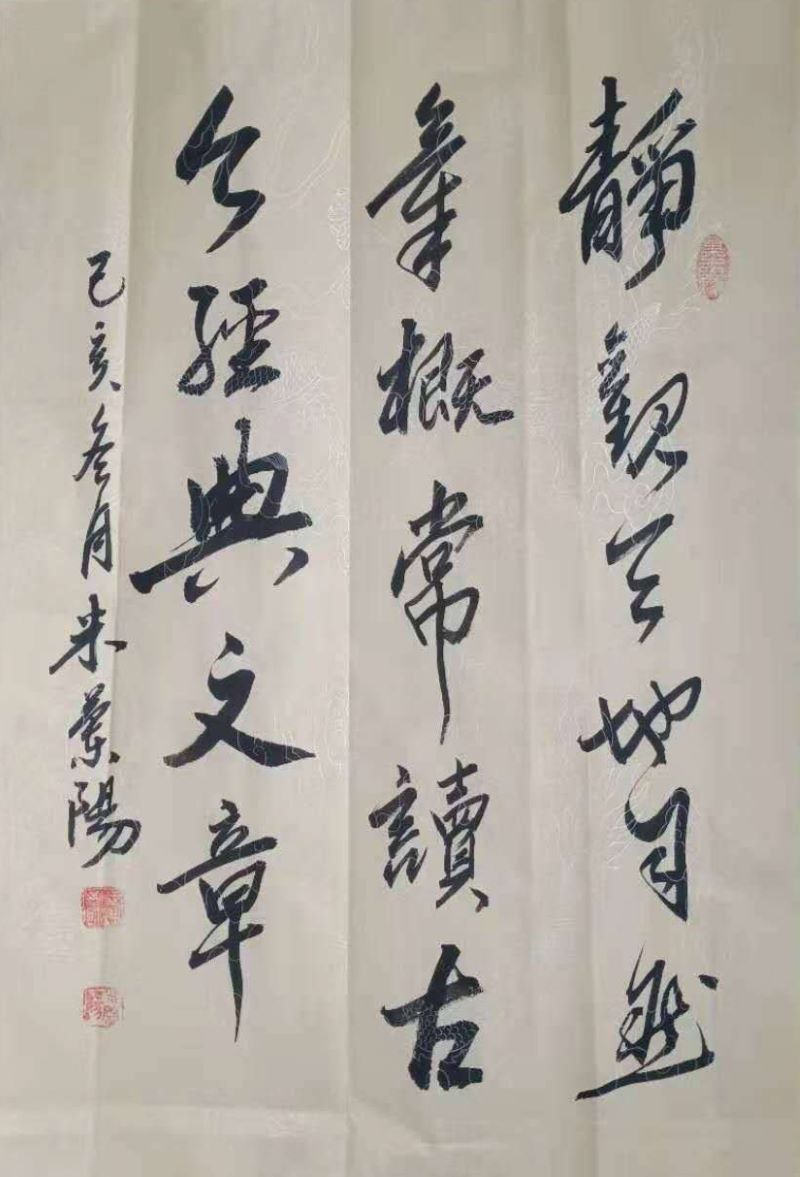 靜觀天地自然
氣概常讀古
今經典文章
己亥冬月米景陽